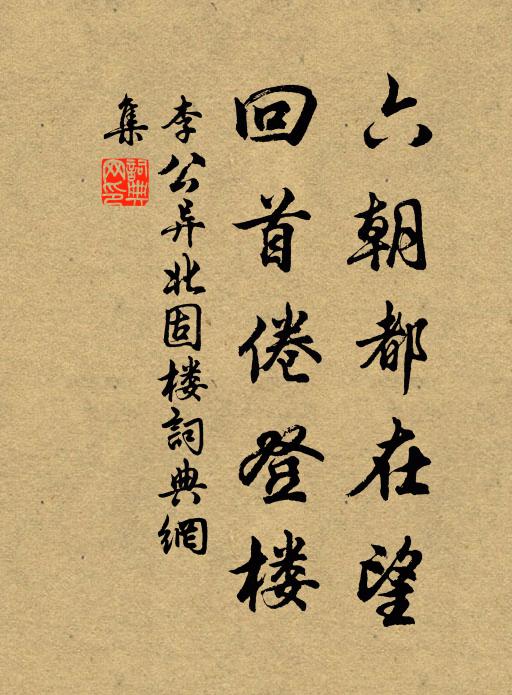 六朝都在望
回首倦登楼
李公异北固楼詞典網
集
詞典网印